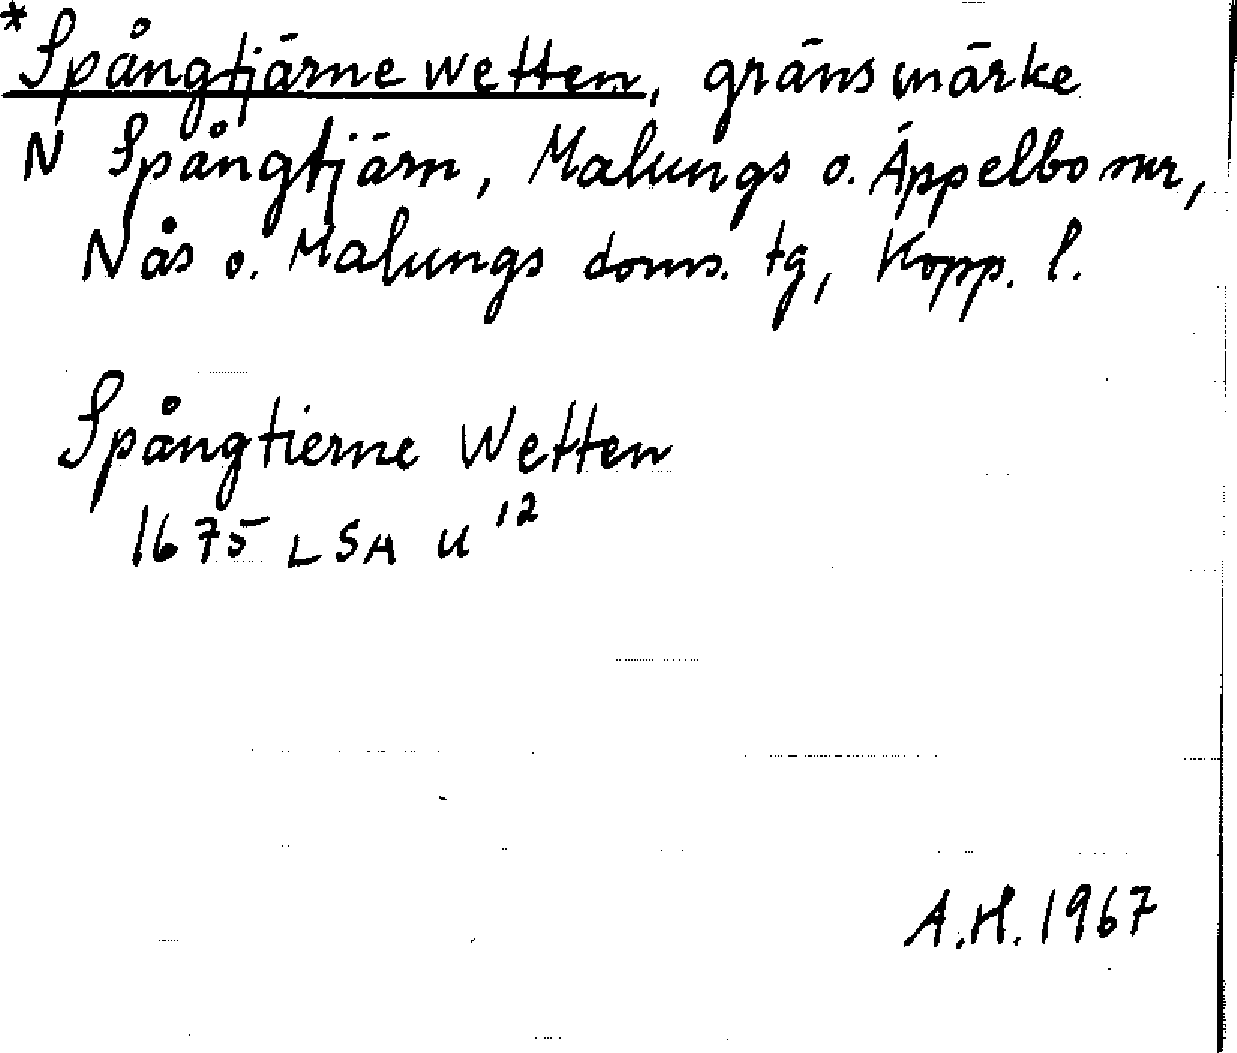 *Spångtjärnewetten, gränsmärke
N Spångtjärn, Malungs o. Äppelbo snr,
Nås o. Malungs doms. tg, Kopp. l.
Spångtierne Wetten
1675 LSA U 12
A.H. 1967